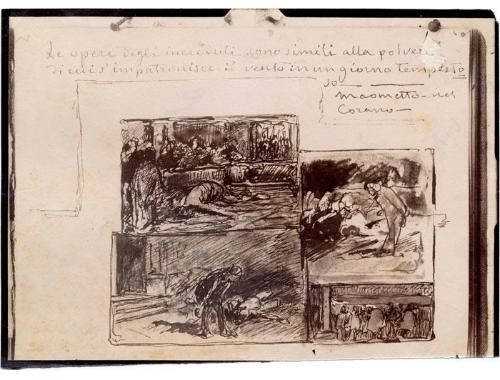 Le opere degli increduli sono simili alla polvere
di cui s'impatronisce il vento in un giorno tempesto
so
Maometto - nel
Corano -